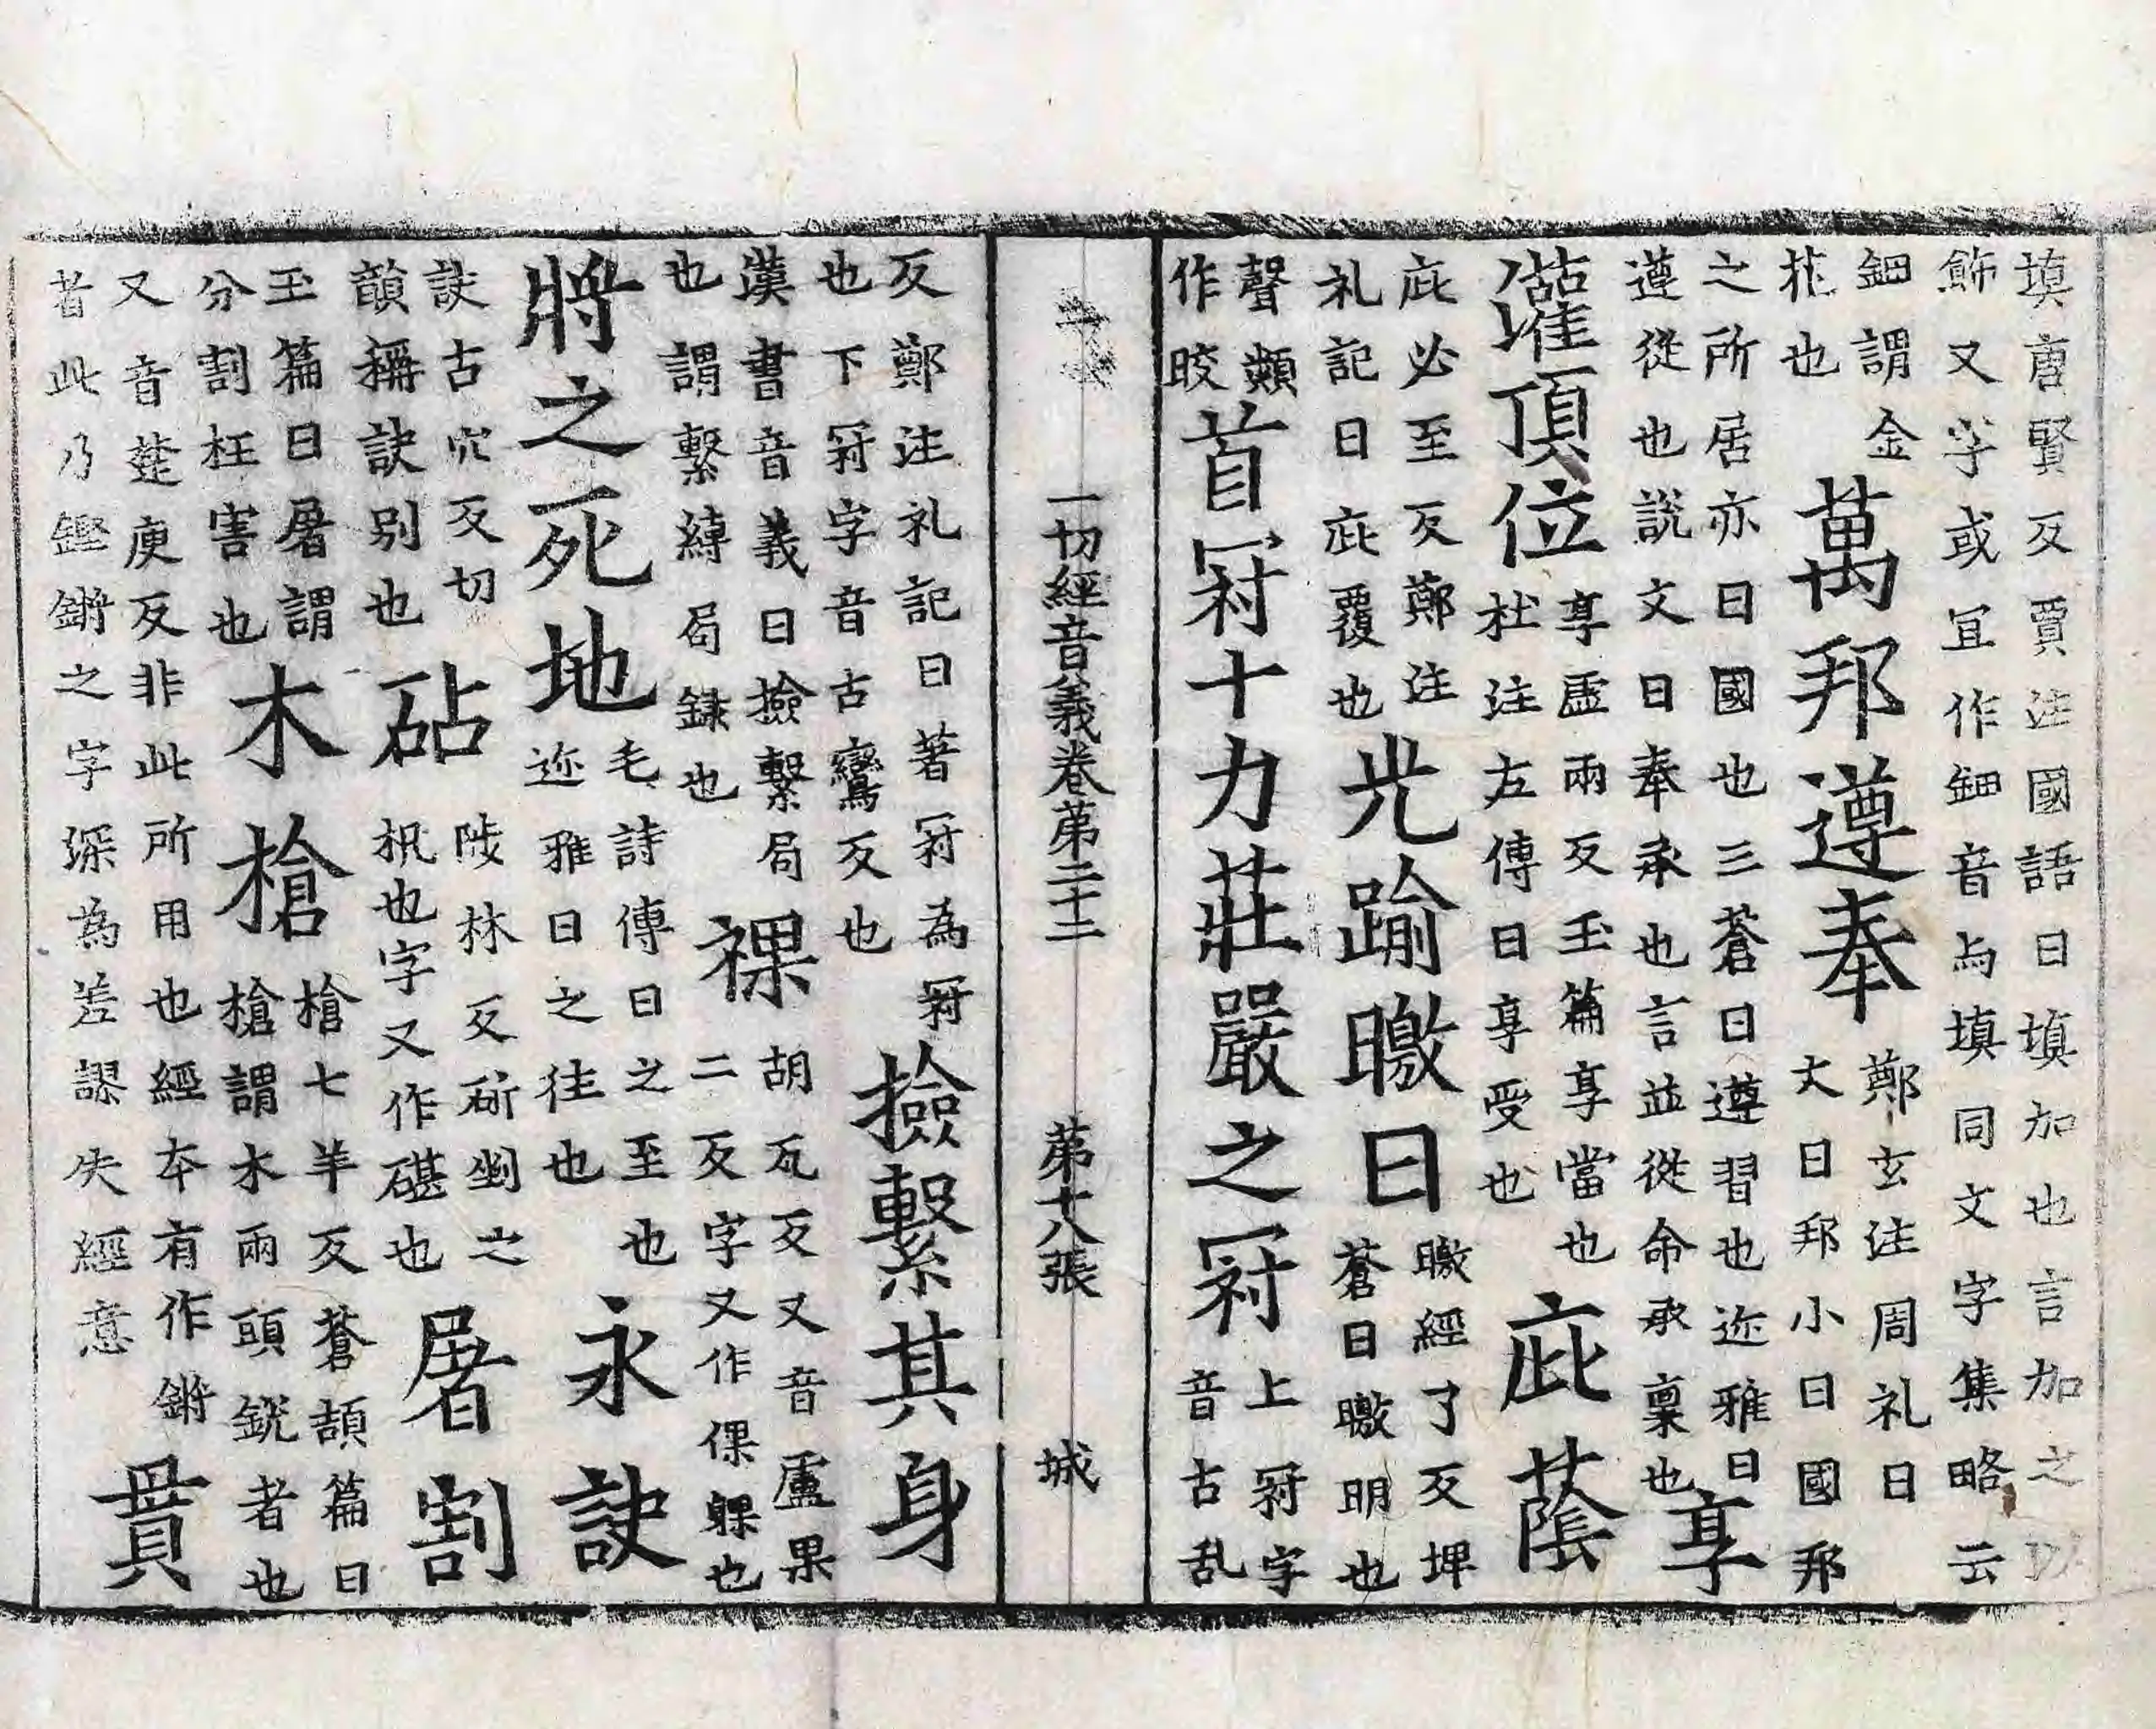 塡唐賢反賈注國語曰塡加也言加之以
飾又字或冝作鈿音与塡同文字集略云
鈿謂金
花也
萬邦遵奉
鄭玄注周礼曰
大曰邦小曰國邦
之所居亦曰國也三蒼曰遵習也迩雅曰
遵從也說文曰奉承也言並從命承稟也
享
灌頂位
享虛兩反玉篇享當也
杜注左傳曰享受也
庇蔭
庇必至反鄭注
礼記曰庇覆也
光踰曒日
曒經了反埤
蒼曰曒明也
聲類
作晈
首冠十力莊嚴之冠
上冠字
音古乱
一切經音義卷第二十二 第十八張 城
反鄭注礼記曰著冠為冠
也下冠字音古鸞反也
撿繫其身
漢書音義曰撿繫局
也謂繫縛局録也
裸
胡瓦反又音盧果
二反字又作倮躶也
將之死地
毛詩傳曰之至也
迩雅曰之往也
永訣
訣古穴反切
韻稱訣别也
砧
陟林反斫剉之
机也字又作碪也
屠割
玉篇曰屠謂
分割枉害也
木槍
槍七羊反蒼頡篇曰
槍謂木兩頭銳者也
又音楚庚反非此所用也經本有作鏘
者此乃鏗鏘之字深為差謬失經意
貫